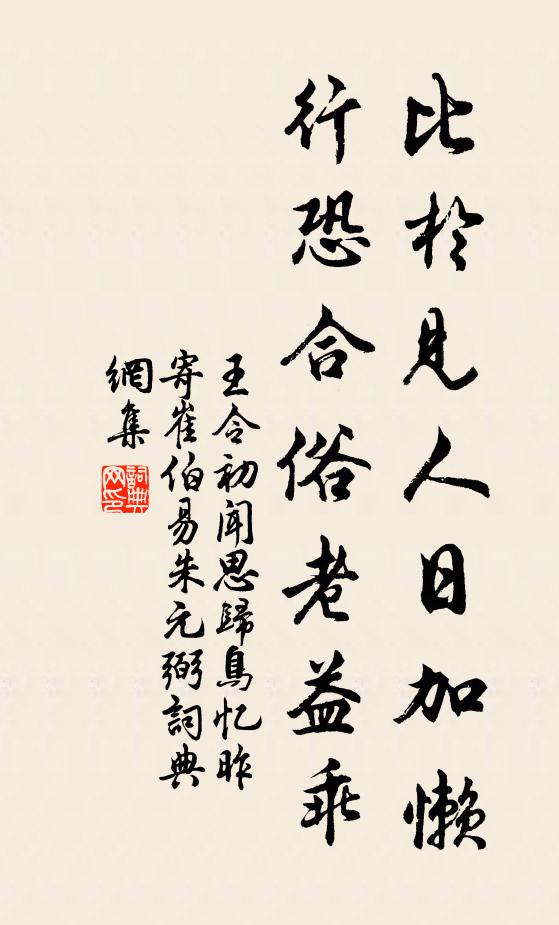 比於見人日加懶
行恐合俗老益乖
王令初聞思歸鳥忆昨
寄崔伯易朱元弼詞典
網集
詞典
网印